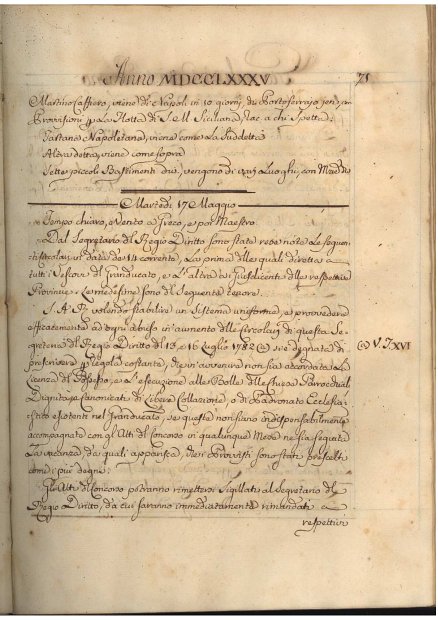 Anno MDCCLXXXV 71
Martino Cafiero, viene di Napoli in 10 giorni, da Portoferrajo jeri, con
Provvisioni p la Flotta di S. M. Siciliana, Rac a chi Spetta.
Tartana Napoletana, viene come La Suddetta
Altra detta, viene come sopra
Sette piccoli Bastimenti div. vengono di varj Luoghi, con
Martedì 17 Maggio
Tempo chiaro, e Vento a Greco, e poi Maestro
Dal Segretario del Regio Diritto sono state rese note Le Seguen
ti Circolari in data de 14 corrente, La prima delle quali diretta a
tutti i Vescovi del Granducato, e L'altra ai Giusdicenti delle respettive
Provincie, e Le medesime sono del Seguente tenore.
S. A. R. volendo stabilire un Sistema uniforme, e provvedere
efficacemente ad ogni abuso in aumento alle Circolari di questa Se
greteria del Regio Diritto del 13 e 16 Luglio 1782 @ si è degnata di @ V. T. XVI
prescrivere p regola costante, che in avvenire non sia accordata La
Licenza del Possesso, e L'esecuzione alle Bolle delle Chiese Parrocchiali
Dignità, e Canonicati di Libera Collazione, o di Padronato Ecclesia
stico esistenti nel Granducato, se queste non siano indispensabilmente
accompagnate con gli Atti del Concorso in qualunque Mese ne sia seguita
La vacanza, da quali apparisca, che i Provvisti sono stati prescelti
come i più degni.
Gli Atti del Concorso potranno rimettersi Sigillati al Segretario del
Regio Diritto, da cui saranno immediatamente rimandati a
respettivi